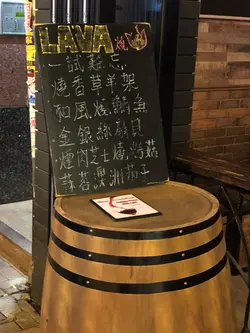 LAVA 燒
一試難忘
燒香草羊架
和風燒鯖魚
金銀絲扇貝
煙肉芝士燒
蒜蓉澳洲茄子